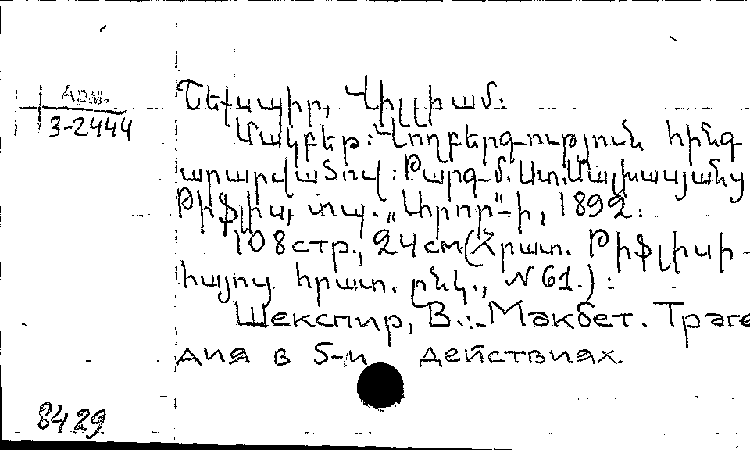 Арм.
3-2444
Շեքսպիր, Վիլլիամ:
Մակբեթ: Ողբերգություն հինգ
արարվածով: Թարգմ. Ստ. Մալխասյանց
Թիֆլիս, տպ. „Վրոր"-ի, 1892:
108 стр., 24 см (Հրատ. Թիֆլիսի
հայոց հրատ. ընկ., № 61.):
Шекспир, В.: Макбет. Траге
дия в 5-и действиях.
8429